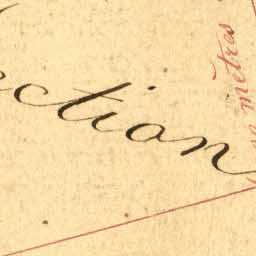 ction
mètres